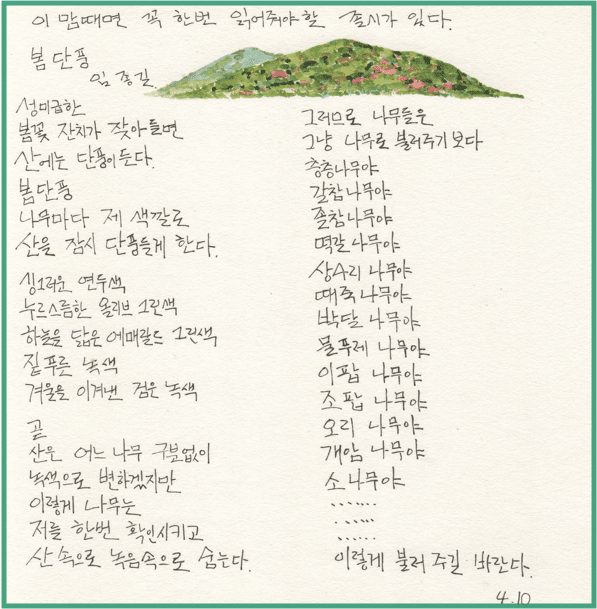 이 맘때면 꼭 한번 읽어줘야할 졸시가 있다.
봄 단풍
임 종길
성미급한
봄꽃 잔치가 잦아들면
산에는 단풍이든다.
봄단풍
나무마다 제 색깔로
산을 잠시 단풍들게 한다.
싱그러운 연두색
누르스름한 올리브 그린색
하늘을 닮은 에매랄드 그린색
짙푸른 녹색
겨울을 이겨낸 검은 녹색
곧
산은 어느 나무 구분없이
녹색으로 변하겠지만
이렇게 나무는
저를 한번 확인시키고
산 속으로 녹음속으로 숨는다.
그러므로 나무들은
그냥 나무로 불러주기 보다
층층나무야
갈참나무야
졸참나무야
떡갈 나무야
상수리 나무야
때죽 나무야
박달 나무야
물푸레 나무야
이팝 나무야
조팝 나무야
오리 나무야
개암 나무야
소 나무야
......
......
......
이렇게 불러 주길 바란다.
4.10